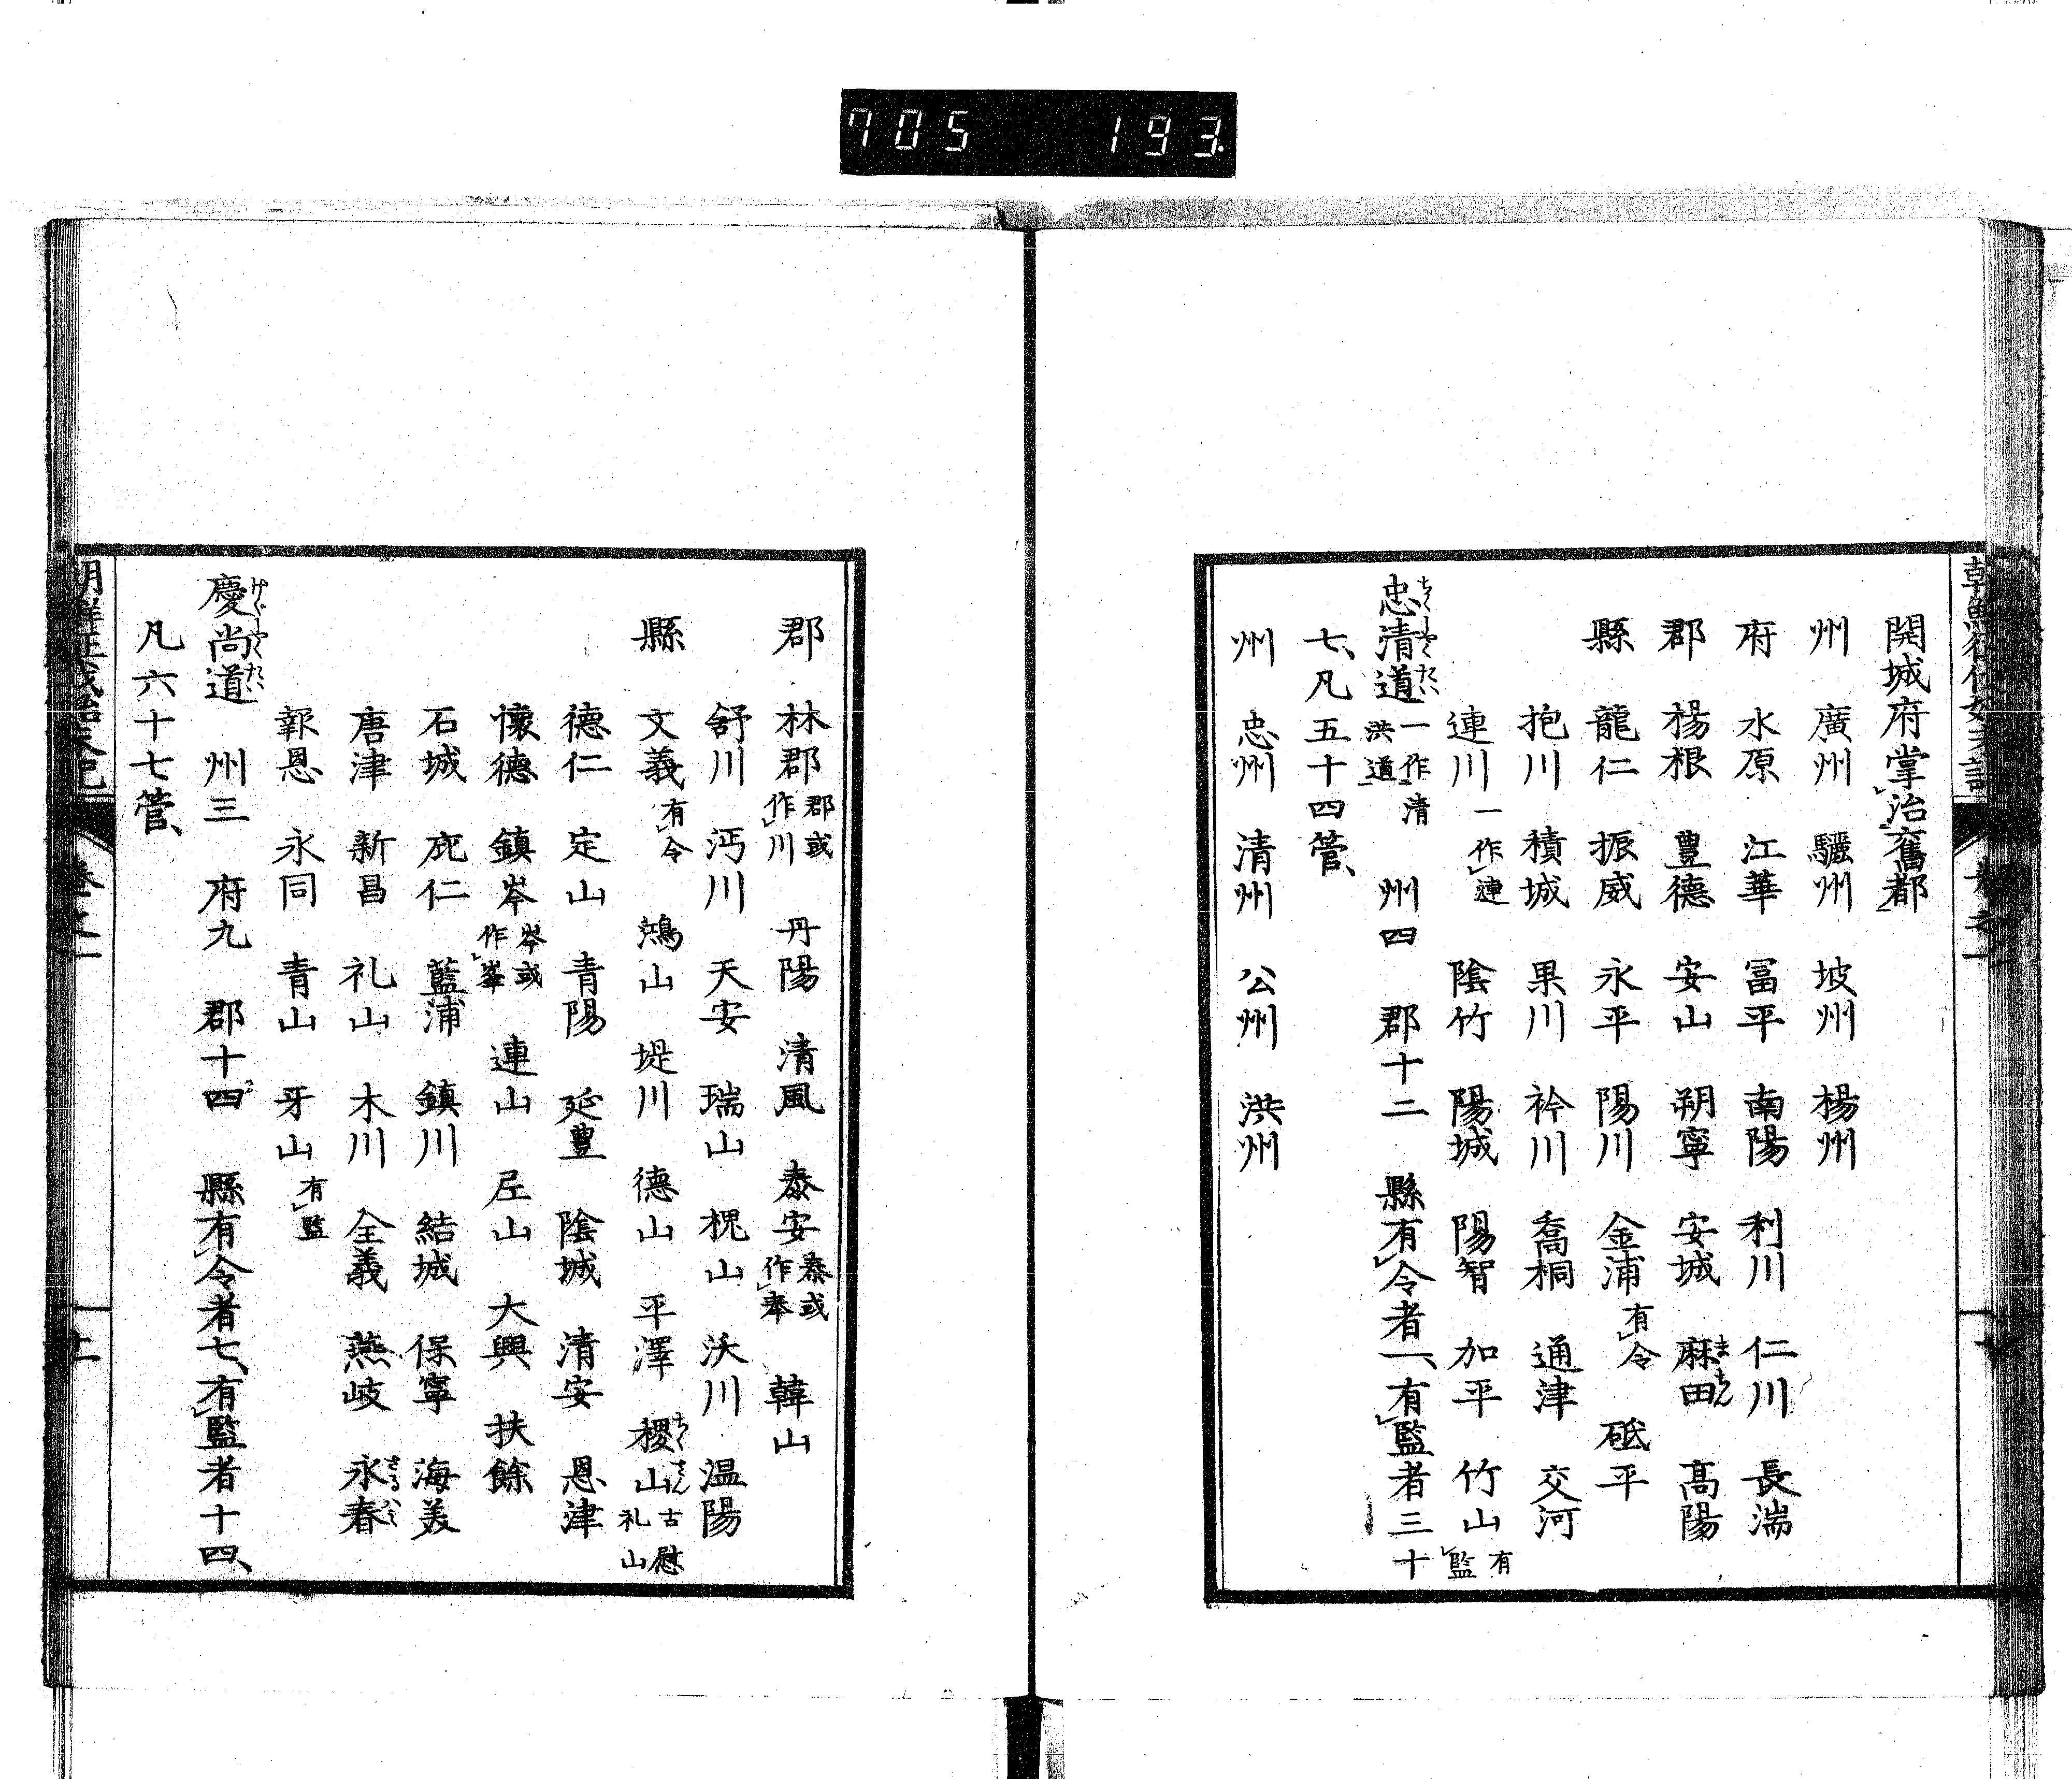 705 193
開城府掌治舊都
州 廣州 驪州 坡州 楊州
府 水原 江華 冨平 南陽 利川 仁川 長湍
郡 楊根 豊德 安山 朔寧 安城 麻田 髙陽
縣 龍仁 振威 永平 陽川 金浦 有令 砥平
抱川 積城 果川 衿川 喬桐 通津 交河
連川 一作連 陰竹 陽城 陽智 加平 竹山 有監
忠清道 一作清洪道 州四 郡十二 縣有令者一、有監者三十
七、凡五十四管、
州 忠州 清州 公州 洪州
郡 林郡 郡或作川 丹陽 清風 泰安 泰或作奉 韓山
舒川 沔川 天安 瑞山 槐山 沃川 温陽
縣 文義 有令 鴻山 堤川 德山 平澤 稷山 古慰礼山
德仁 定山 青陽 延豊 陰城 清安 恩津
懷德 鎮岑 岑或作峯 連山 尼山 大興 扶餘
石城 庇仁 藍浦 鎮川 結城 保寧 海美
唐津 新昌 礼山 木川 全義 燕岐 永春
報恩 永同 青山 牙山 有監
慶尚道 州三 府九 郡十四 縣有令者七、有監者十四、
凡六十七管、